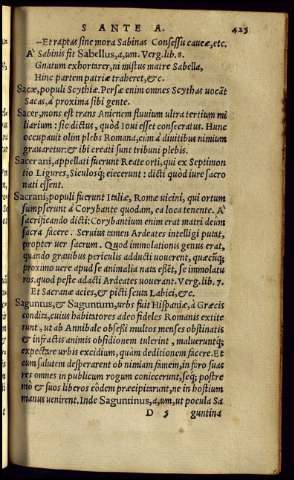 SANTE A. 425
—Et raptas sine more Sabinas Consessu caueæ, etc.
A' Sabinis fit Sabellus, a, um. Verg. lib. 8.
Gnatum exhortarer, ni mistus matre Sabella,
Hinc partem patriæ traheret, &c.
Sacæ, populi Scythiæ. Persæ enim omnes Scythas uocāt
Sacas, à proxima sibi gente.
Sacer, mons est trans Anienem fluuium ultra tertium mi
liarium: sic dictus, quòd Ioui esset consecratus. Hunc
occupauit olim plebs Romana, cùm à diuitibus nimium
grauaretur: & ibi creati sunt tribuni plebis.
Sacerani, appellati fuerunt Reate orti, qui ex Septimon
tio Ligures, Siculosq; eiecerunt: dicti quòd iure sacro
nati essent.
Sacrani, populi fuerunt Italiæ, Romæ uicini, qui ortum
sumpserunt à Corybante quodam, ea loca tenente. A'
sacrificando dicti: Corybantium enim erat matri deum
sacra facere. Seruius tamen Ardeates intelligi putat,
propter uer sacrum. Quod immolationis genus erat,
quando grauibus periculis adducti uouerent, quæcūq;
proximo uere apud se animalia nata essēt, se immolatu
ros. quod peste adacti Ardeates uouerant. Verg. lib. 7.
Et Sacranæ acies, & picti scuta Labici, &c.
Saguntus, & Saguntum, urbs fuit Hispaniæ, à Græcis
condita, cuius habitatores adeo fideles Romanis extite
runt, ut ab Annibale obsessi multos menses obstinatis
& infractis animis obsidionem tulerint, maluerintq;
expectare urbis excidium, quàm deditionem facere. Et
cum salutem desperarent ob nimiam famem, in foro suas
res omnes in publicum rogum coniecerunt, seq; postre
mò & suos liberos eòdem præcipitarunt, ne in hostium
manus uenirent. Inde Saguntinus, a, um, ut pocula Sa
D 5 guntina